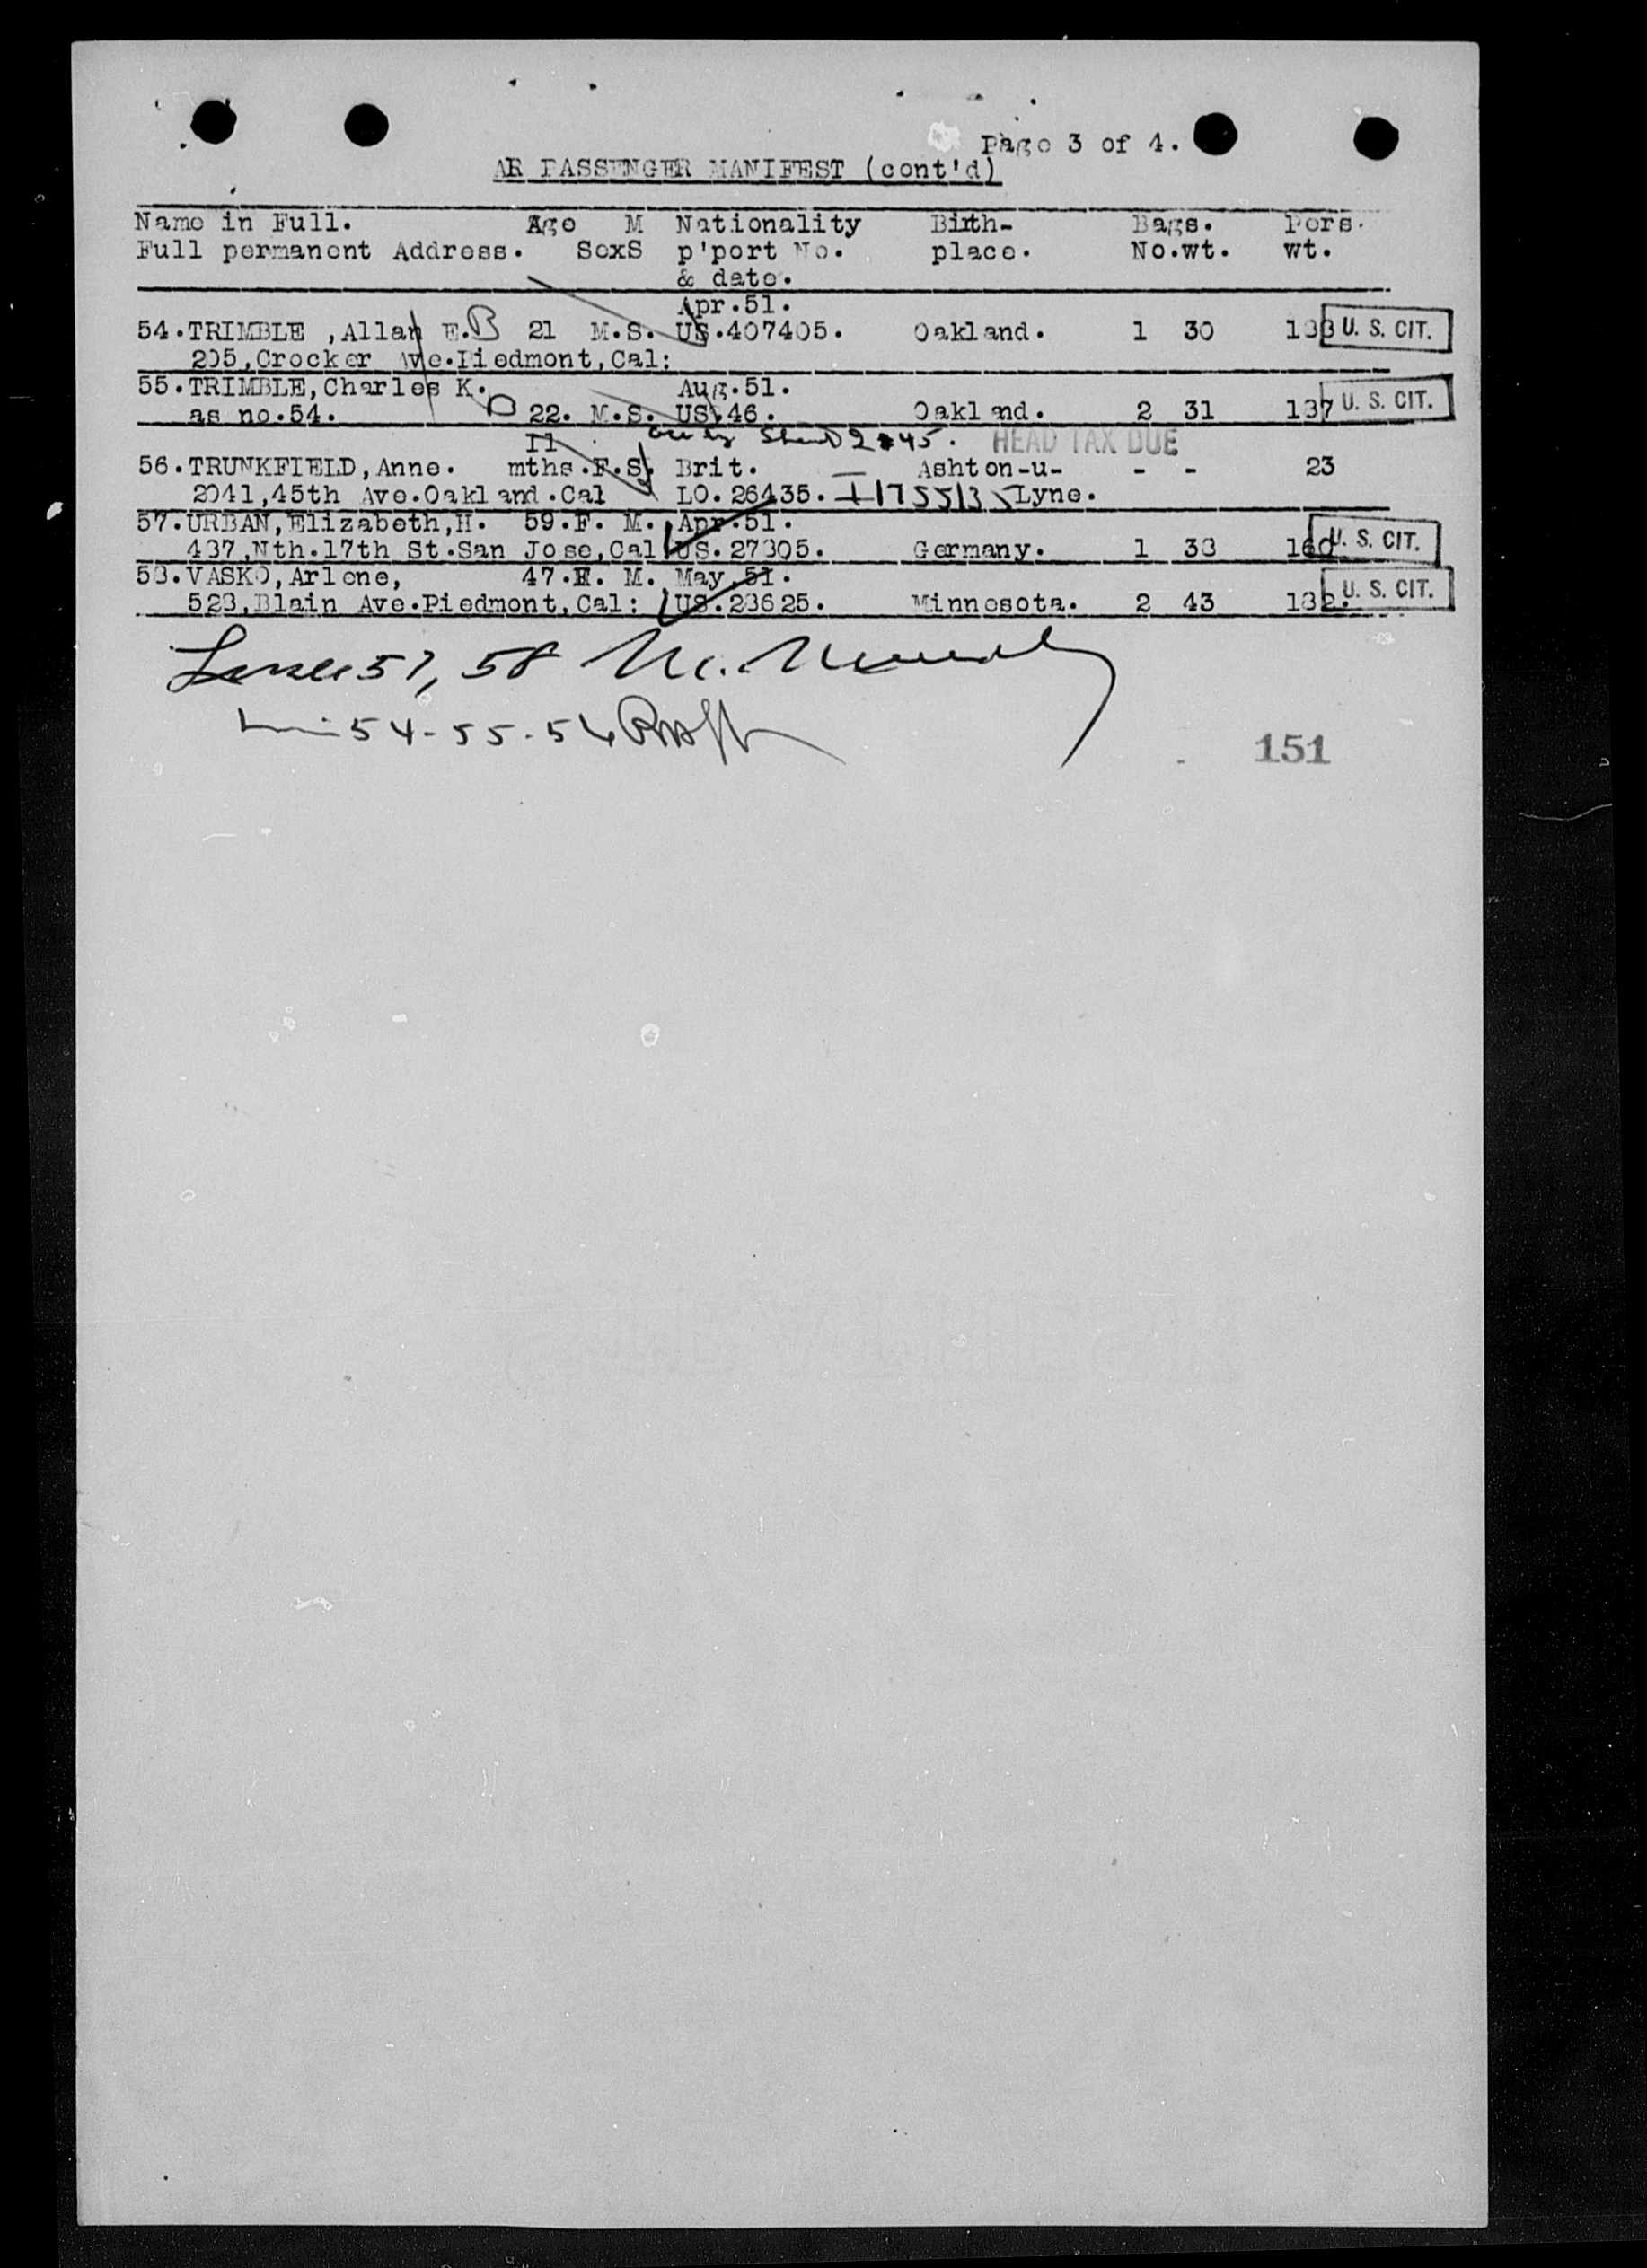 Page 3 of 4.
AR PASSENGER MANIFEST (cont'd)
Name in Full. Age M Nationality Birth- Bags. Pers.
Full permanent Address. SexS p'port No. place. No.wt. wt.
& date.
Apr.51.
54.TRIMBLE ,Allan E.B 21 M.S. US.407405. Oakland. 1 30 U. S. CIT.
205,Crocker Ave.Piedmont,Cal:
55.TRIMBLE,Charles K. Aug.51.
as no.54. 22. M.S. US.46. Oakland. 2 31 137 U. S. CIT.
11 2#45. HEAD TAX DUE
56.TRUNKFIELD,Anne. mths.F.S. Brit. Ashton-u- - - 23
2041,45th Ave.Oakland.Cal LO.26435. I1755135 Lyne.
57.URBAN,Elizabeth,H. 59.F. M. Apr.51.
437,Nth.17th St.San Jose,Cal US.27305. Germany. 1 38 160 U. S. CIT.
58.VASKO,Arlene, 47.F. M. May.51.
523,Blain Ave.Piedmont,Cal: US.23625. Minnesota. 2 43 132. U. S. CIT.
57, 58
54-55-56
151